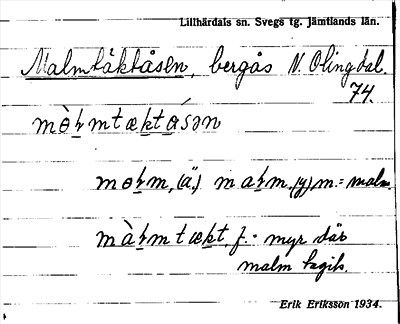 Lillhärdals sn. Svegs tg. Jämtlands län.
Malmtäktåsen, bergås N. Olingdal.
74.
mɵ̀ꞕmtæktåsən
mɵꞕm, (ä,) maꞕm, (y) m. = malm.
màꞕmtækt, f. = myr där
malm tagits.
Erik Eriksson 1934.